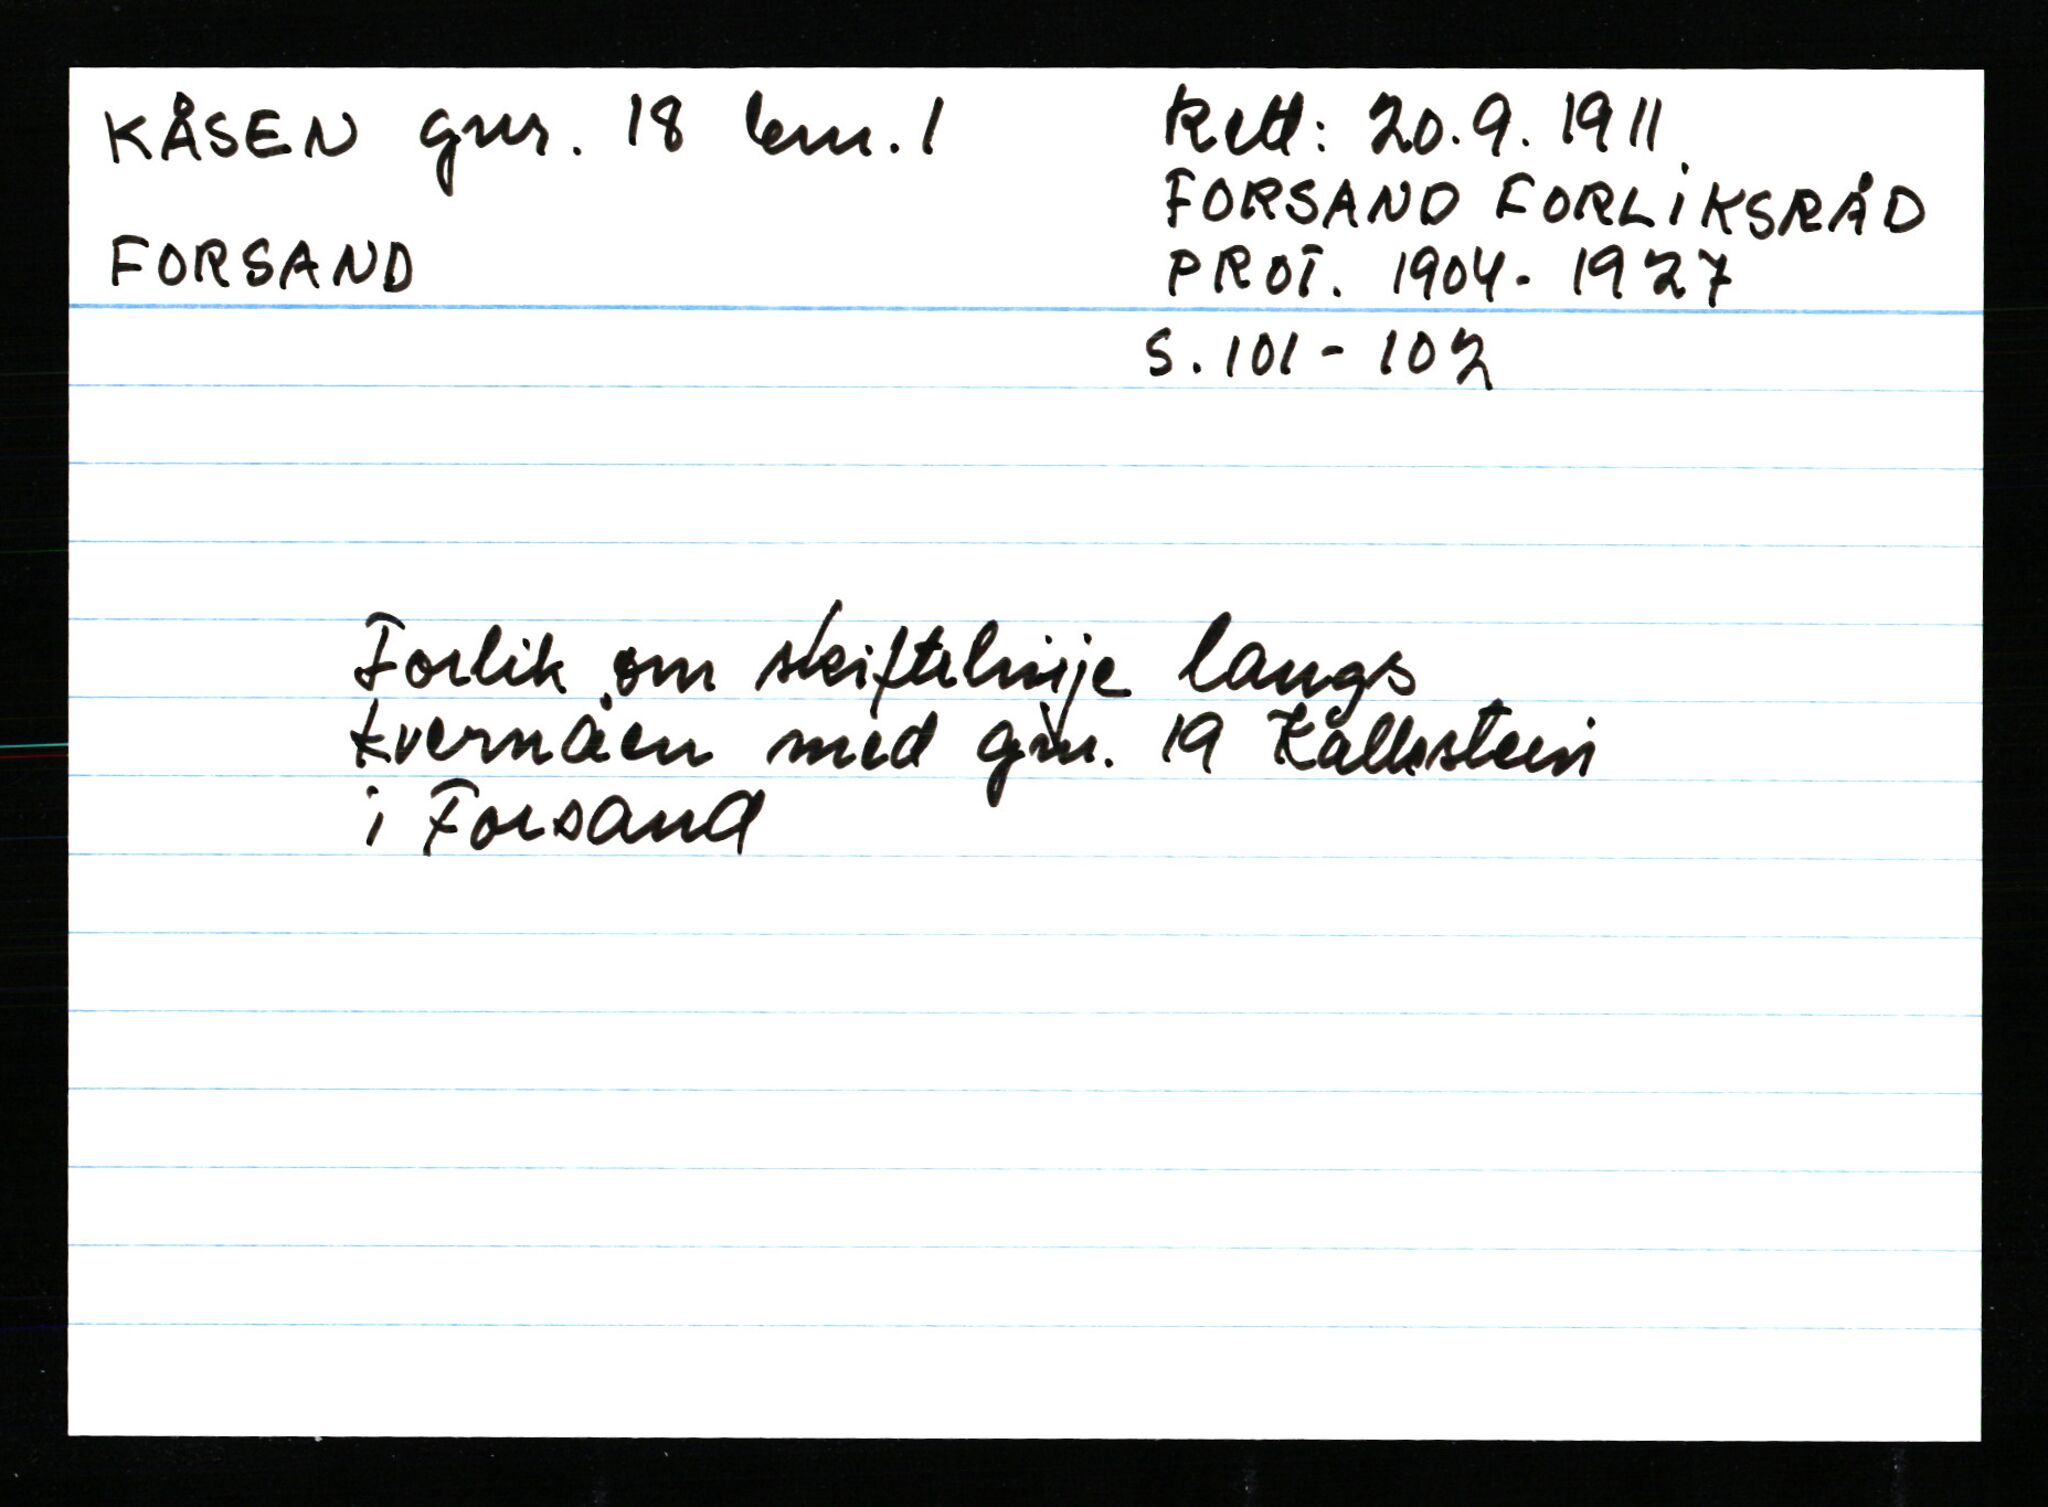 KÅSEN gnr. 18 bnr. 1
FORSAND
Rett: 20.9.1911.
FORSAND FORLIKSRÅD
PROT. 1904-1927
S. 101-102
Forlik om skiftelinje langs
kvernåen med gnr. 19 Kallestein
i Forsand